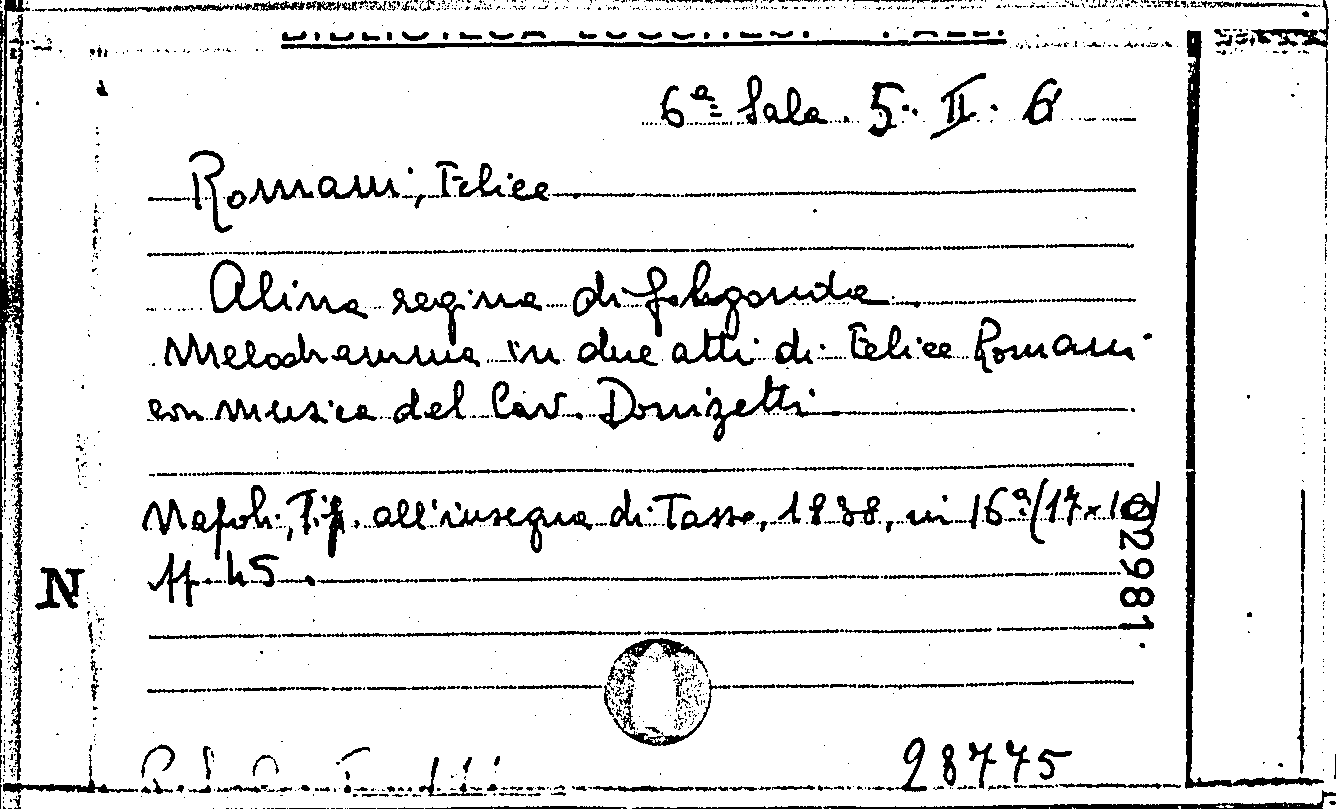 BIBLIOTECA LUCCHESI - PALLI
6ª Sala. 5. II. 6
Romani, Felice
Alina regina di Golgonda
Melodramma in due atti di Felice Romani
con musica del Cav. Donizetti
Napoli, Tip. all'insegna di Tasso, 1838, in 16º (17x10)
pp. 45.
N
02981
28775